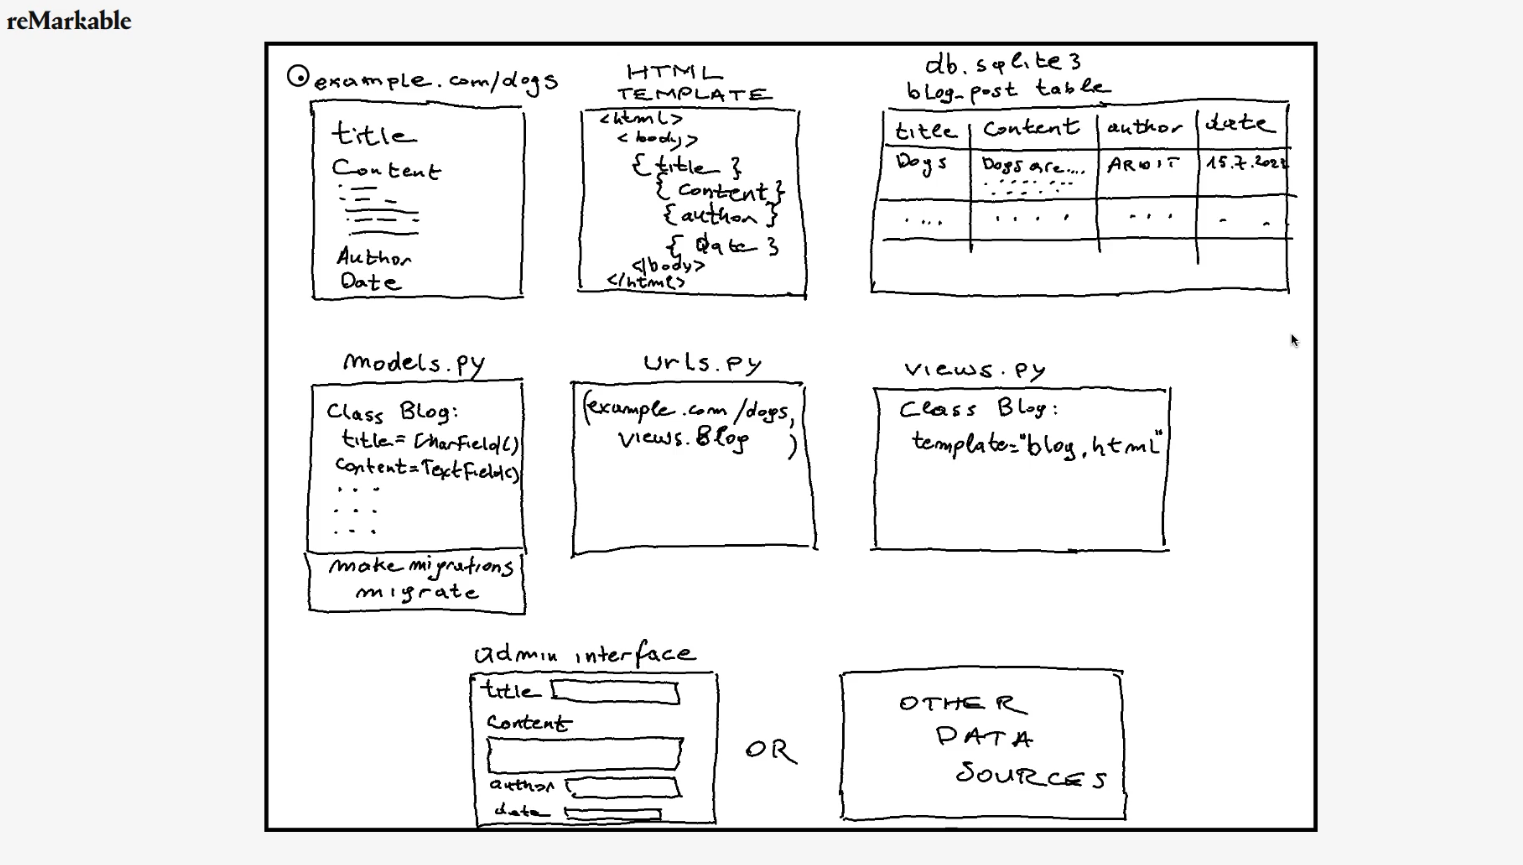 reMarkable
example.com/dogs
title
Content
Author
Date
HTML
TEMPLATE
<html>
<body>
{ title }
{ content }
{ author }
{ date }
</body>
</html>
db.sqlite3
blog_post table
title content author date
Dogs Dogs are.... ARDIT 15.7.2022
.... .... ... . .
models.py
Class Blog:
title = CharField()
content = TextField()
...
...
...
make migrations
migrate
urls.py
(example.com/dogs,
views.Blog )
views.py
Class Blog:
template="blog.html"
admin interface
title
Content
author
date
OR
OTHER
DATA
SOURCES